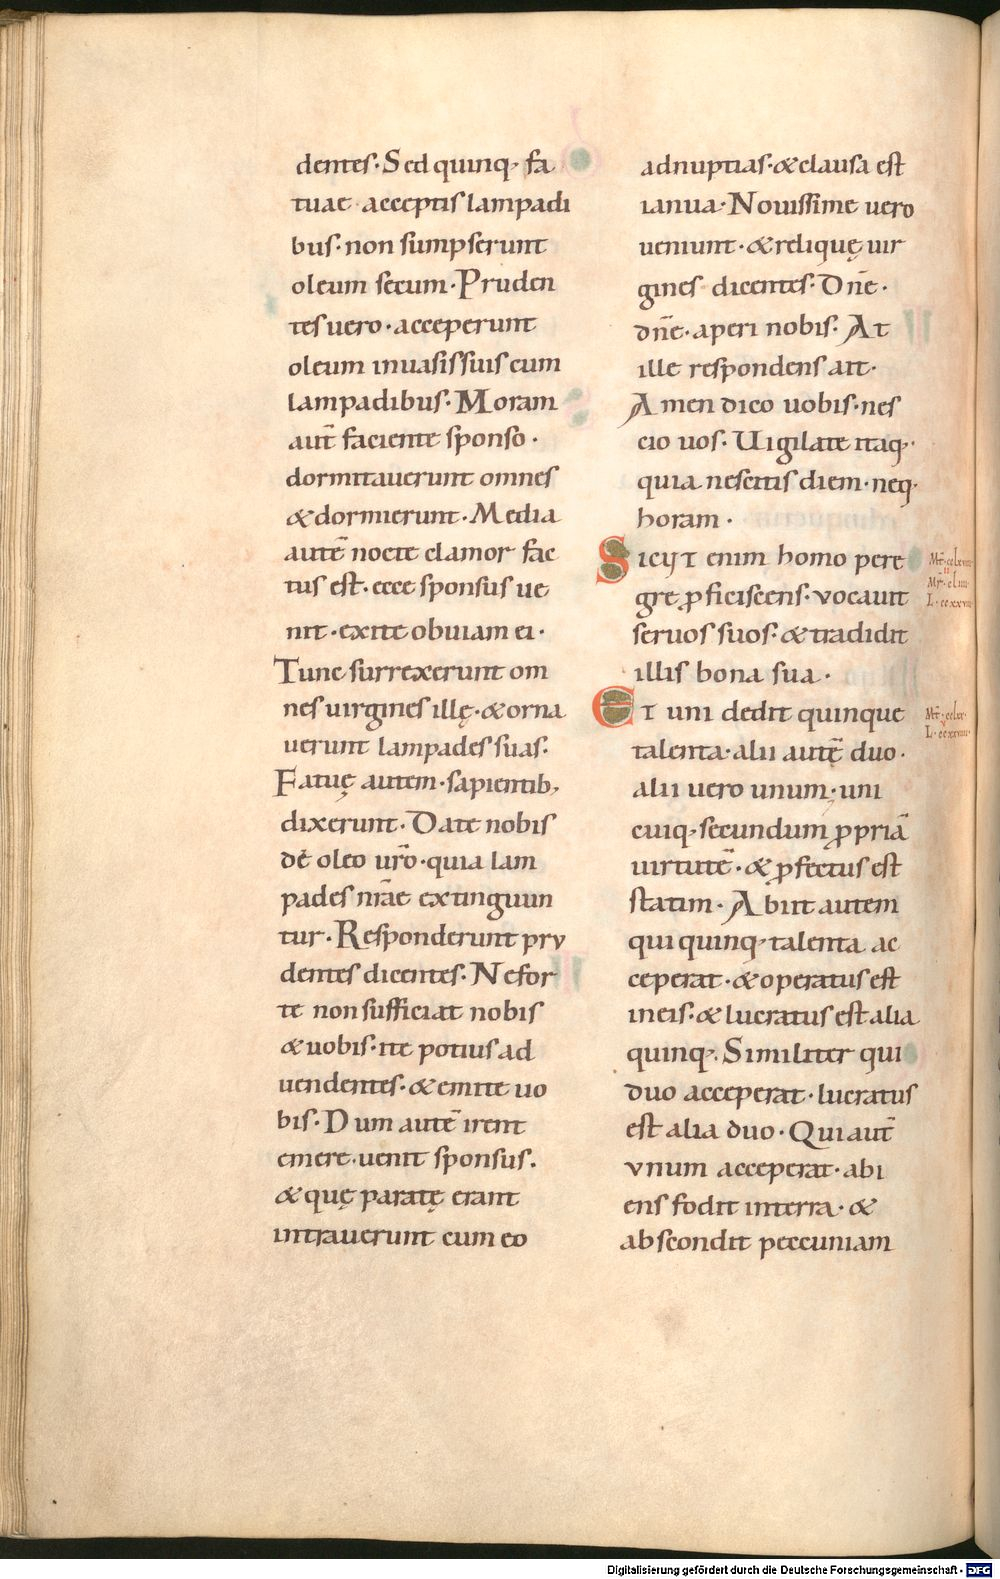 dentes· Sed quinq; fa
tuae acceptis lampadi
bus· non sumpserunt
oleum secum· Pruden
tes uero· acceperunt
oleum inuasis suis cum
lampadibus· Moram
aut̄ faciente sponso·
dormitauerunt omnes
& dormierunt· Media
autē nocte clamor fac
tus est· ecce sponsus ue
nit· exite obuiam ei·
Tunc surrexerunt om
nes uirgines illę· & orna
uerunt lampades suas·
Fatuę autem· sapientib;
dixerunt· Date nobis
de oleo ur̄o· quia lam
pades nr̄ae extinguun
tur· Responderunt pru
dentes dicentes· Ne for
te non sufficiat nobis
& uobis· ite potius ad
uendentes· & emite uo
bis· Dum autē irent
emere· uenit sponsus·
& quę paratę erant
intrauerunt cum eo
ad nuptias· & clausa est
ianua· Nouissime uero
ueniunt· & reliquę uir
gines dicentes· Dn̄e·
dn̄e· aperi nobis· At
ille respondens ait·
Amen dico uobis· nes
cio uos· Uigilate itaq;·
quia nescitis diem· neq;
horam·
Sicut enim homo pere
gre ꝓficiscens· vocauit
seruos suos· & tradidit
illis bona sua·
Et uni dedit quinque
talenta· alii autē duo·
alii uero unum· uni
cuiq; secundum ꝓpriā
uirtutē· & ꝓfectus est
statim· Abiit autem
qui quinq; talenta ac
ceperat· & operatus est
in eis· & lucratus est alia
quinq;· Similiter qui
duo acceperat· lucratus
est alia duo· Qui aut̄
vnum acceperat· abi
ens fodit in terra· &
abscondit peccuniam
Digitalisierung gefördert durch die Deutsche Forschungsgemeinschaft - DFG